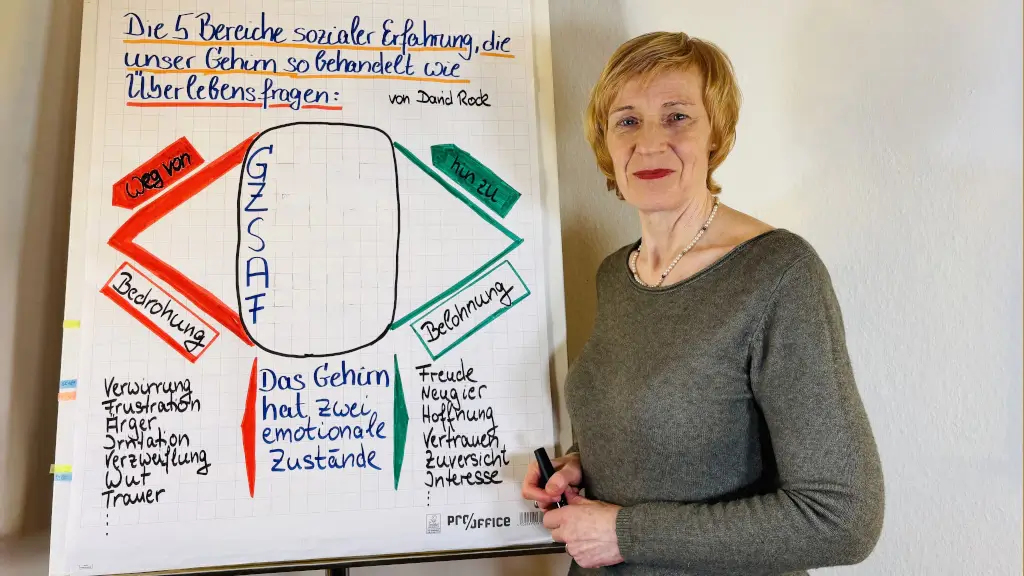 Die 5 Bereiche sozialer Erfahrung, die
unser Gehirn so behandelt wie
Überlebensfragen:
von David Rock
Weg von
hin zu
G
Z
S
A
F
Bedrohung
Belohnung
Verwirrung
Frustration
Ärger
Irritation
Verzweiflung
Wut
Trauer
Das Gehirn
hat zwei
emotionale
Zustände
Freude
Neugier
Hoffnung
Vertrauen
Zuversicht
Interesse
PRO/OFFICE